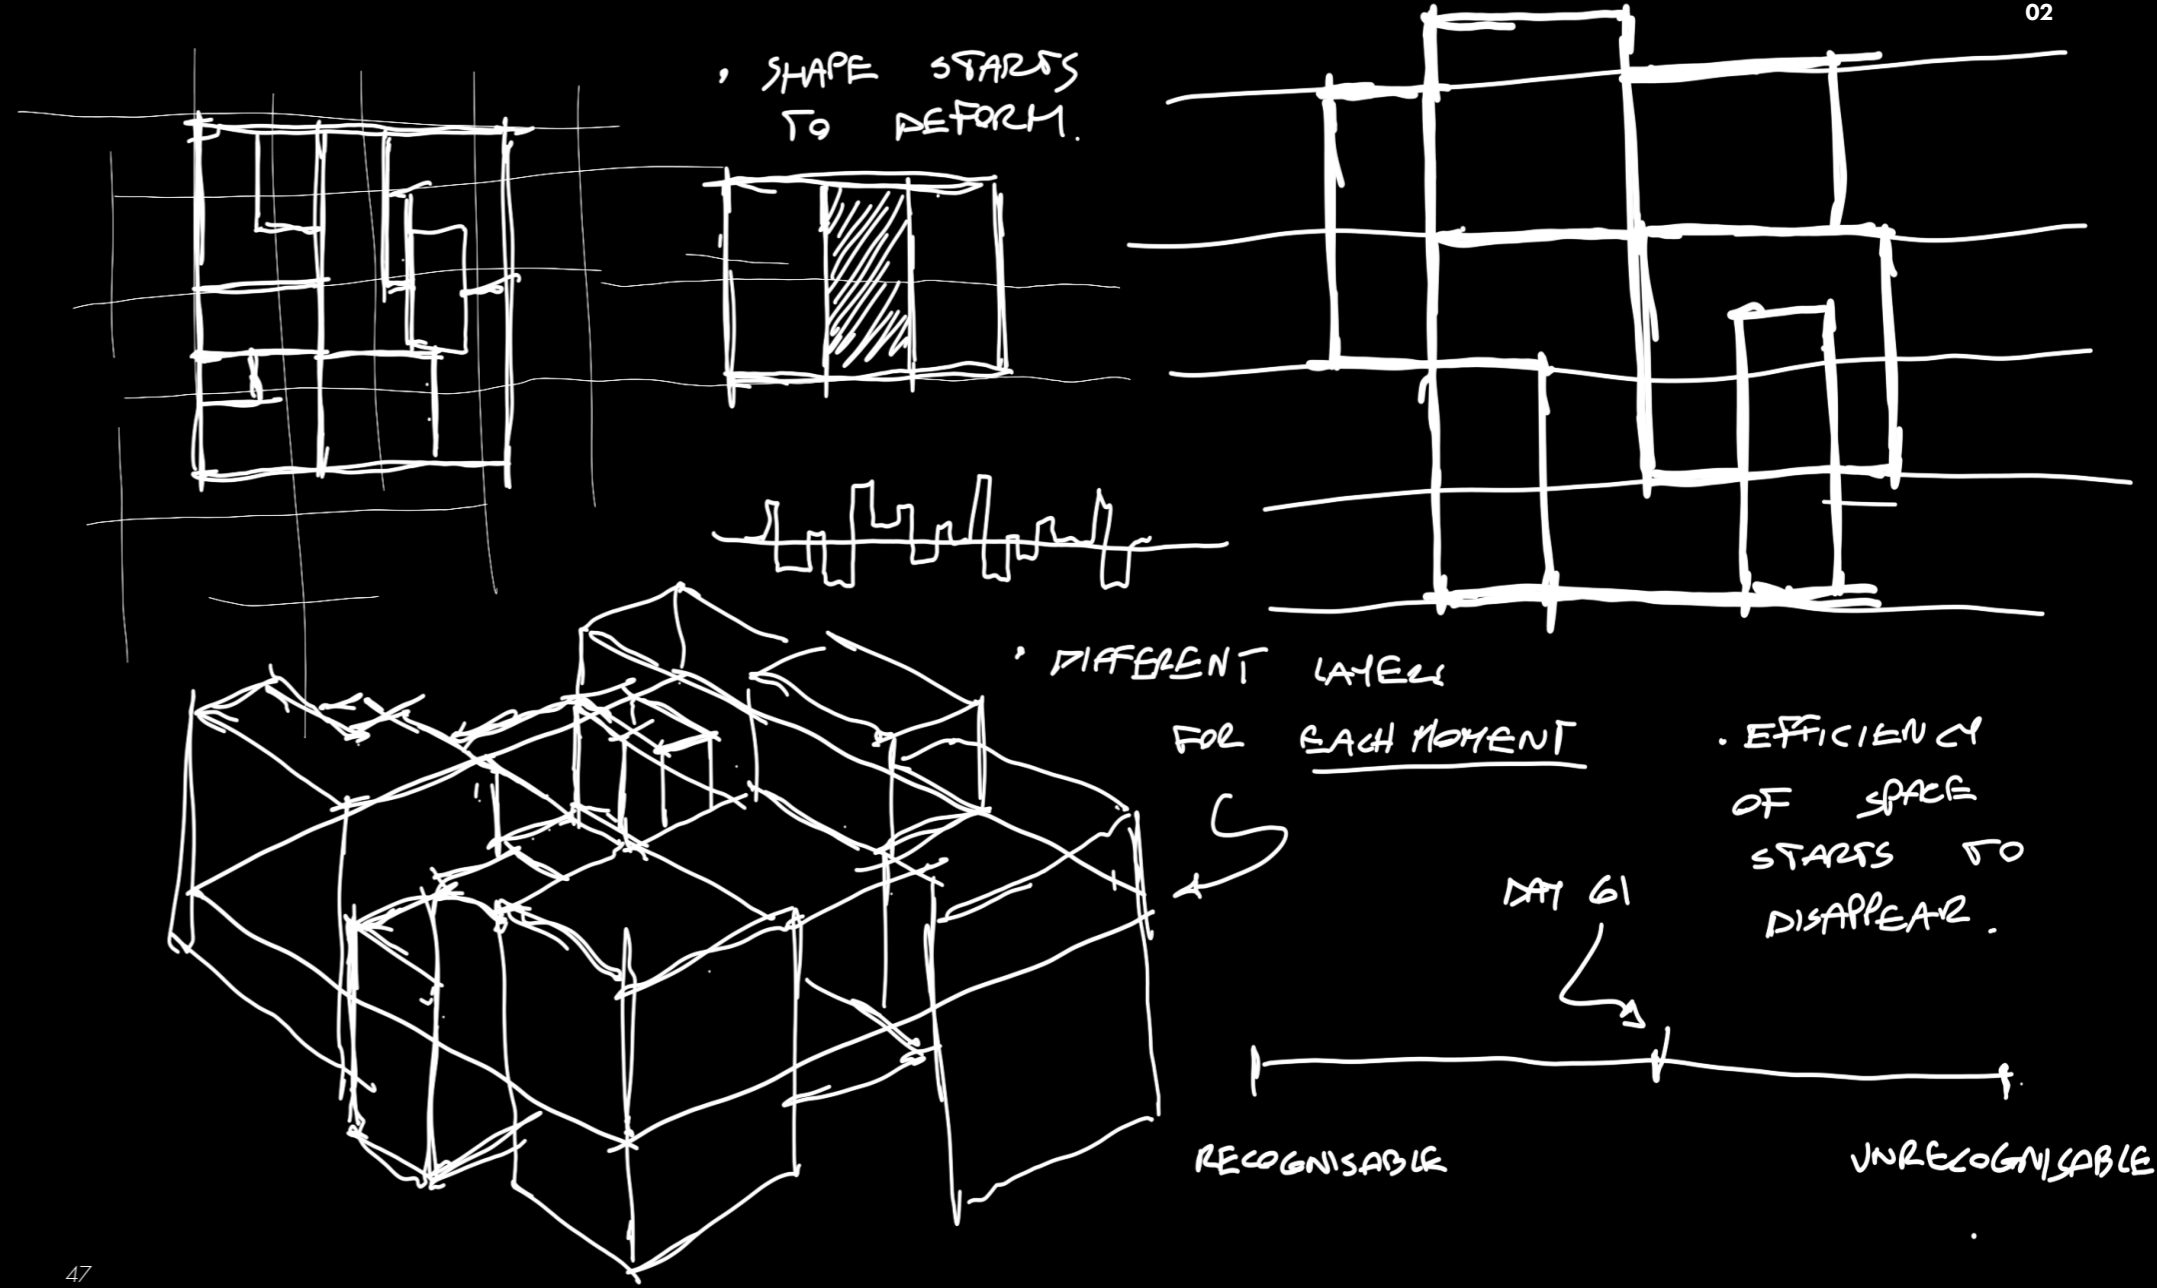 02
• SHAPE STARTS
TO DEFORM.
• DIFFERENT LAYERS
FOR EACH MOMENT
• EFFICIENCY
OF SPACE
STARTS TO
DISAPPEAR.
DAY 61
RECOGNISABLE
UNRECOGNISABLE
47